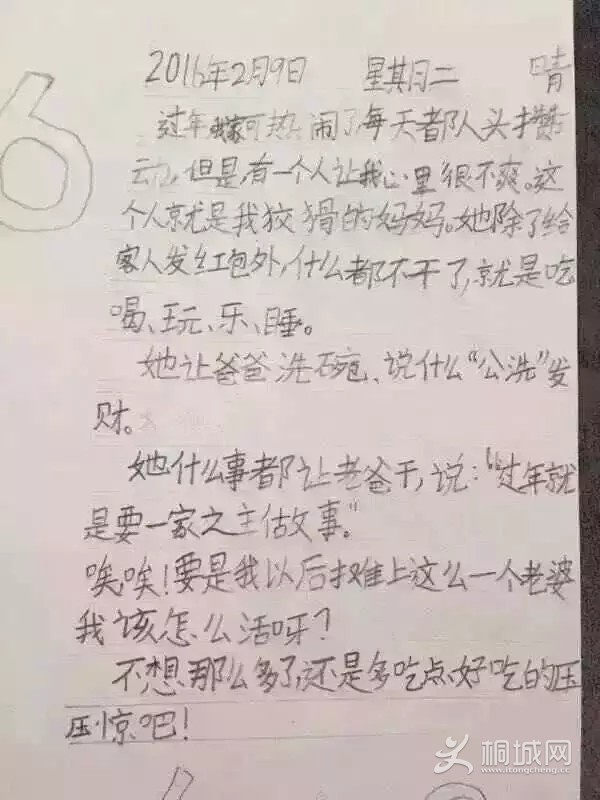 2016年2月9日 星期二 晴
过年我家可热闹了,每天都队人头攒
动,但是,有一个人让我心里很不爽。这
个人就是我狡猾的妈妈。她除了给
客人发红包外,什么都不干了,就是吃
喝、玩、乐、睡。
她让爸爸洗碗、说什么“公洗”发
财。
她什么事都让老爸干,说:“过年就
是要一家之主做事。”
唉,唉!要是我以后摊上这么一个老婆
我该怎么活呀?
不想那么多了,还是多吃点好吃的压
压惊吧!
6
桐城网
www.itongcheng.cc